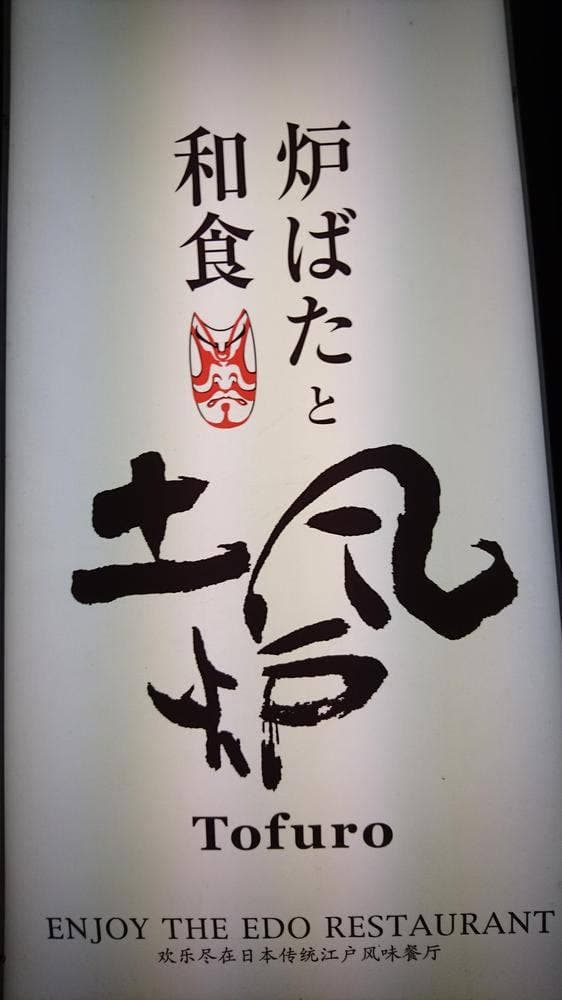 炉ばたと
和食
土風炉
Tofuro
ENJOY THE EDO RESTAURANT
欢乐尽在日本传统江户风味餐厅